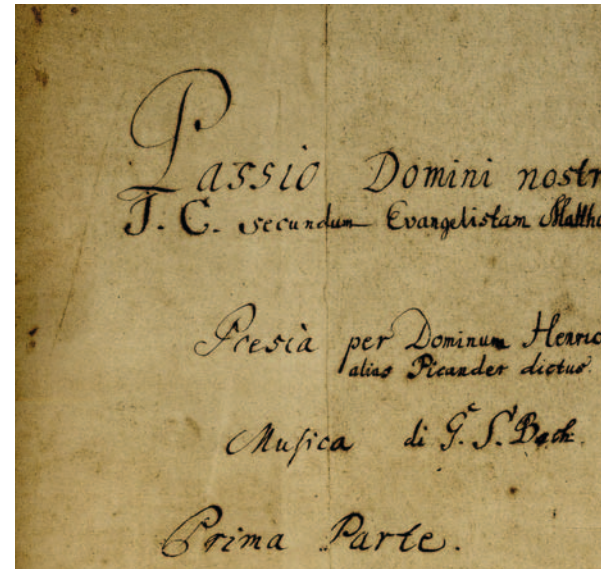 Passio Domini nostr
J. C. secundum Evangelistam Matthæ
Poesia per Dominum Henric
alias Picander dictus.
Musica di G. S. Bach.
Prima Parte.